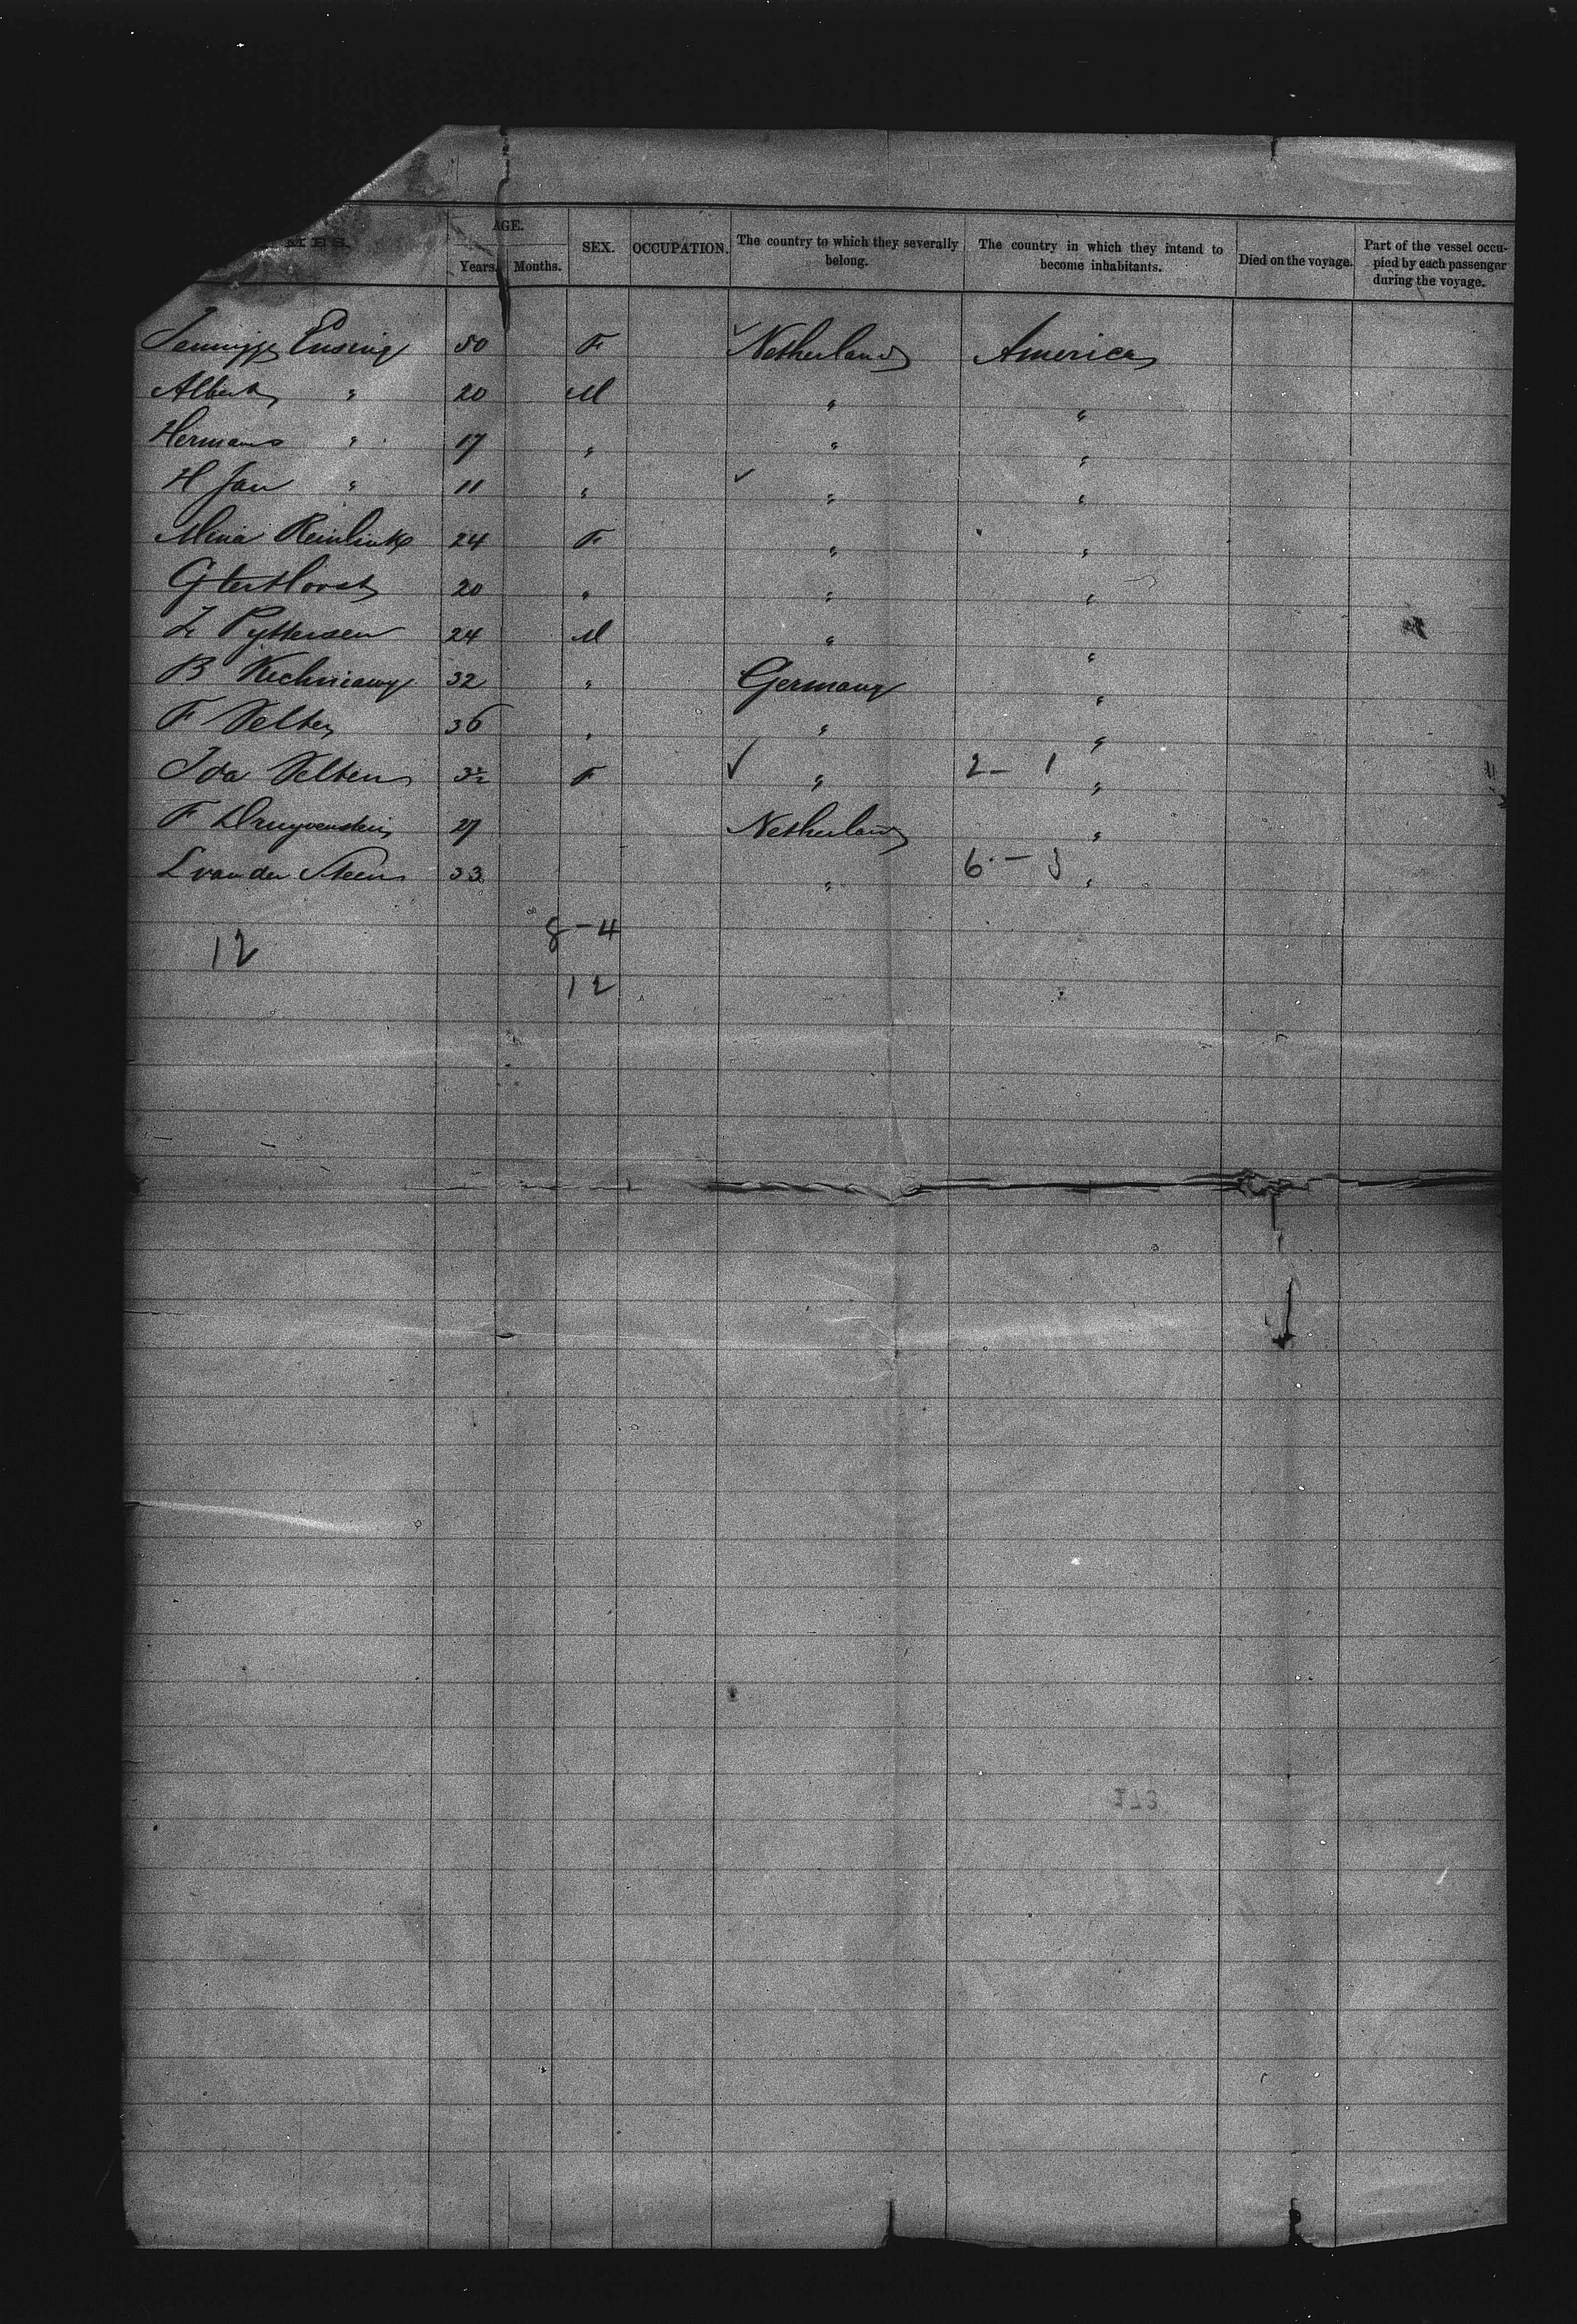 MES. AGE. Years. Months. SEX. OCCUPATION. The country to which they severally belong. The country in which they intend to become inhabitants. Died on the voyage. Part of the vessel occupied by each passenger during the voyage.
Ensing 50 F Netherland America
Albert " 20 M " "
Hermans " 17 " " "
H Jan " 11 " " "
Mina Reinlink 24 F " "
G ter Horst 20 " " "
Z Pyttersen 24 M " "
B 32 " Germany "
F Velten 36 " " "
Ida Velten 32 F " 2 - 1 "
F Druyvenstein 27 Netherland "
L van der Steen 33 " 6 - 3 "
8 - 4
12
12